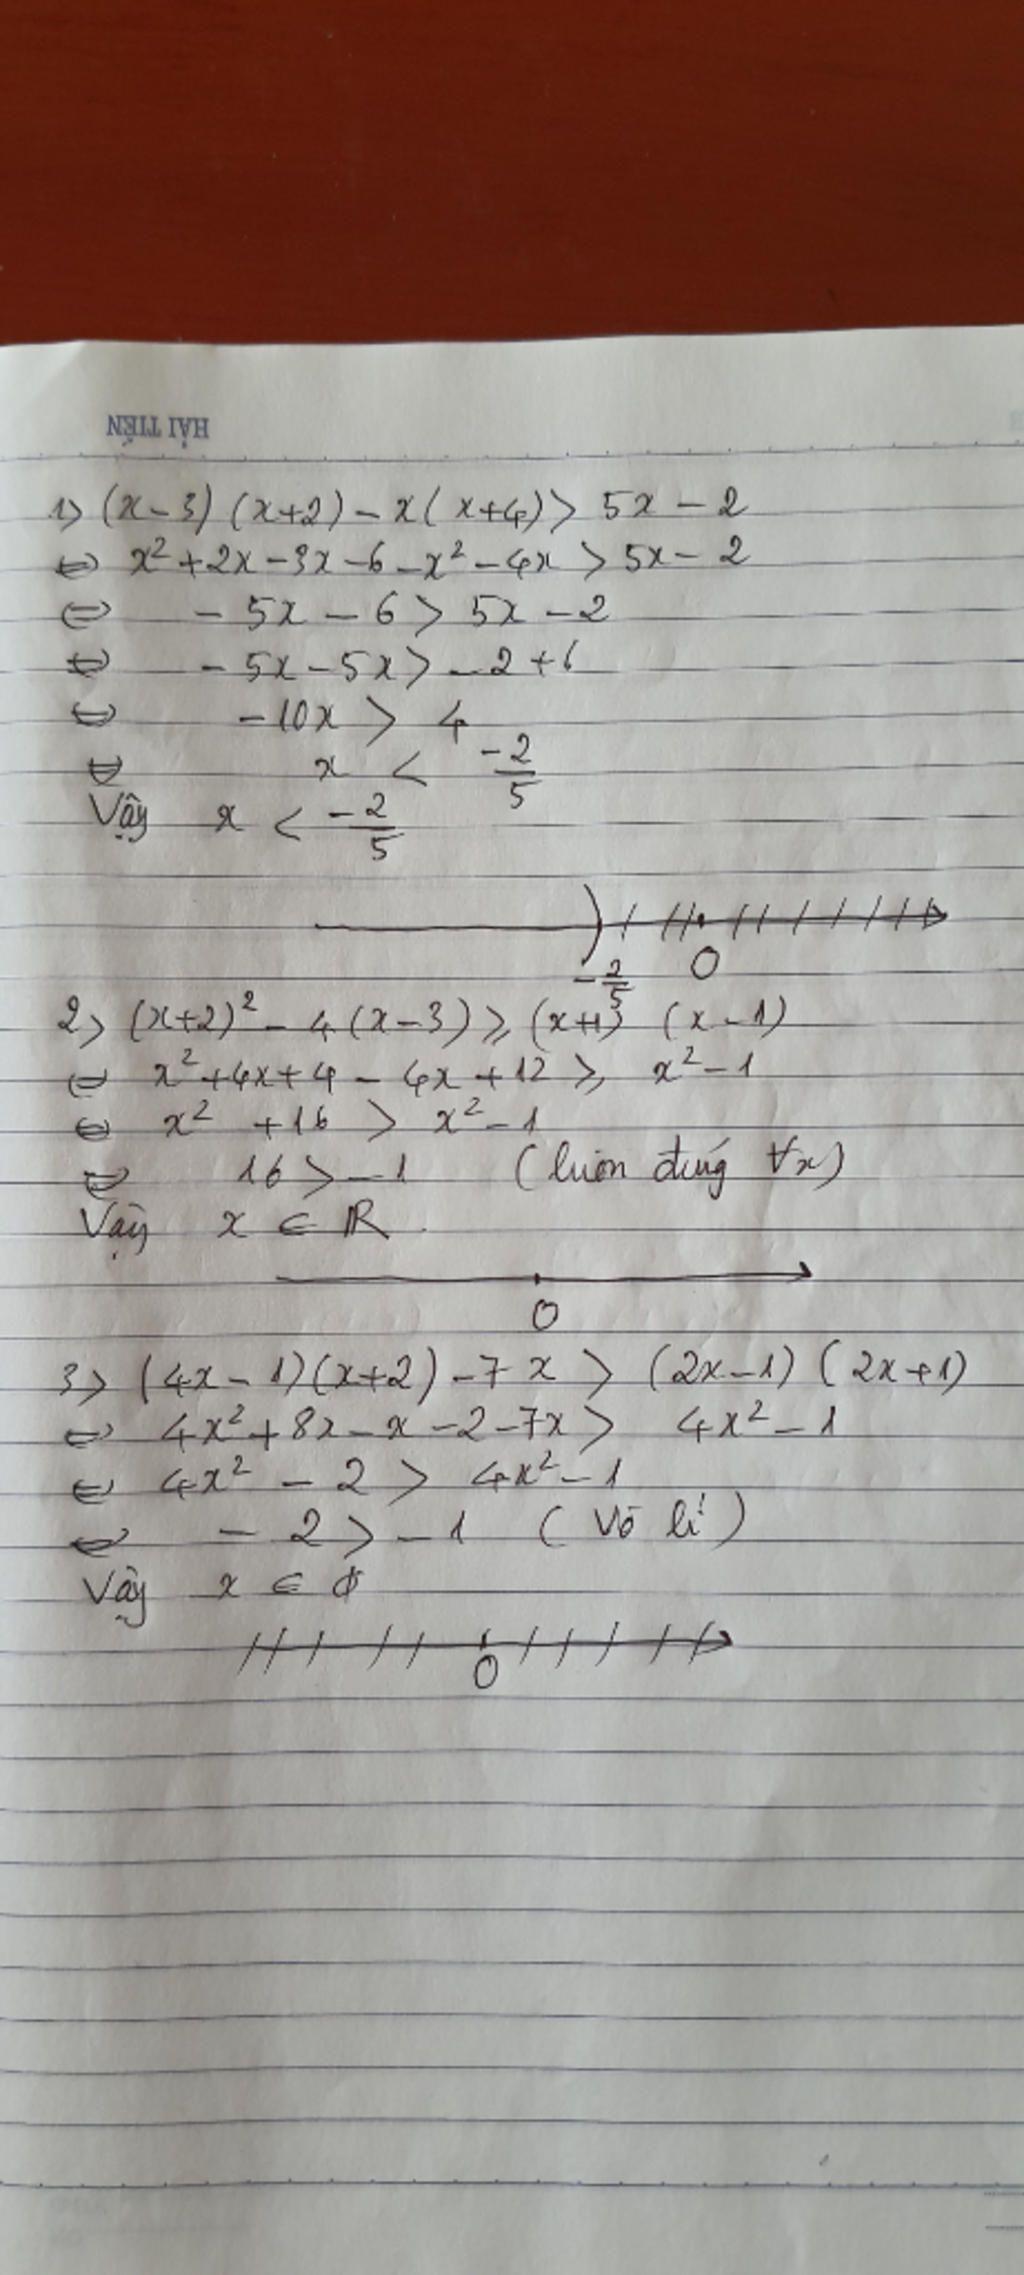 HẢI TIẾN
1> (x-3)(x+2) - x(x+4) > 5x - 2
⇔ x² + 2x - 3x - 6 - x² - 4x > 5x - 2
⇔ - 5x - 6 > 5x - 2
⇔ - 5x - 5x > - 2 + 6
⇔ - 10x > 4
⇔ x < -2/5
Vậy x < -2/5
-2/5 0
2> (x+2)² - 4(x-3) ≥ (x+1)(x-1)
⇔ x² + 4x + 4 - 4x + 12 ≥ x² - 1
⇔ x² + 16 > x² - 1
⇔ 16 > -1 (luôn đúng ∀x)
Vậy x ∈ ℝ
0
3> (4x-1)(x+2) - 7x > (2x-1)(2x+1)
⇔ 4x² + 8x - x - 2 - 7x > 4x² - 1
⇔ 4x² - 2 > 4x² - 1
⇔ - 2 > -1 (Vô lí)
Vậy x ∈ ∅
0